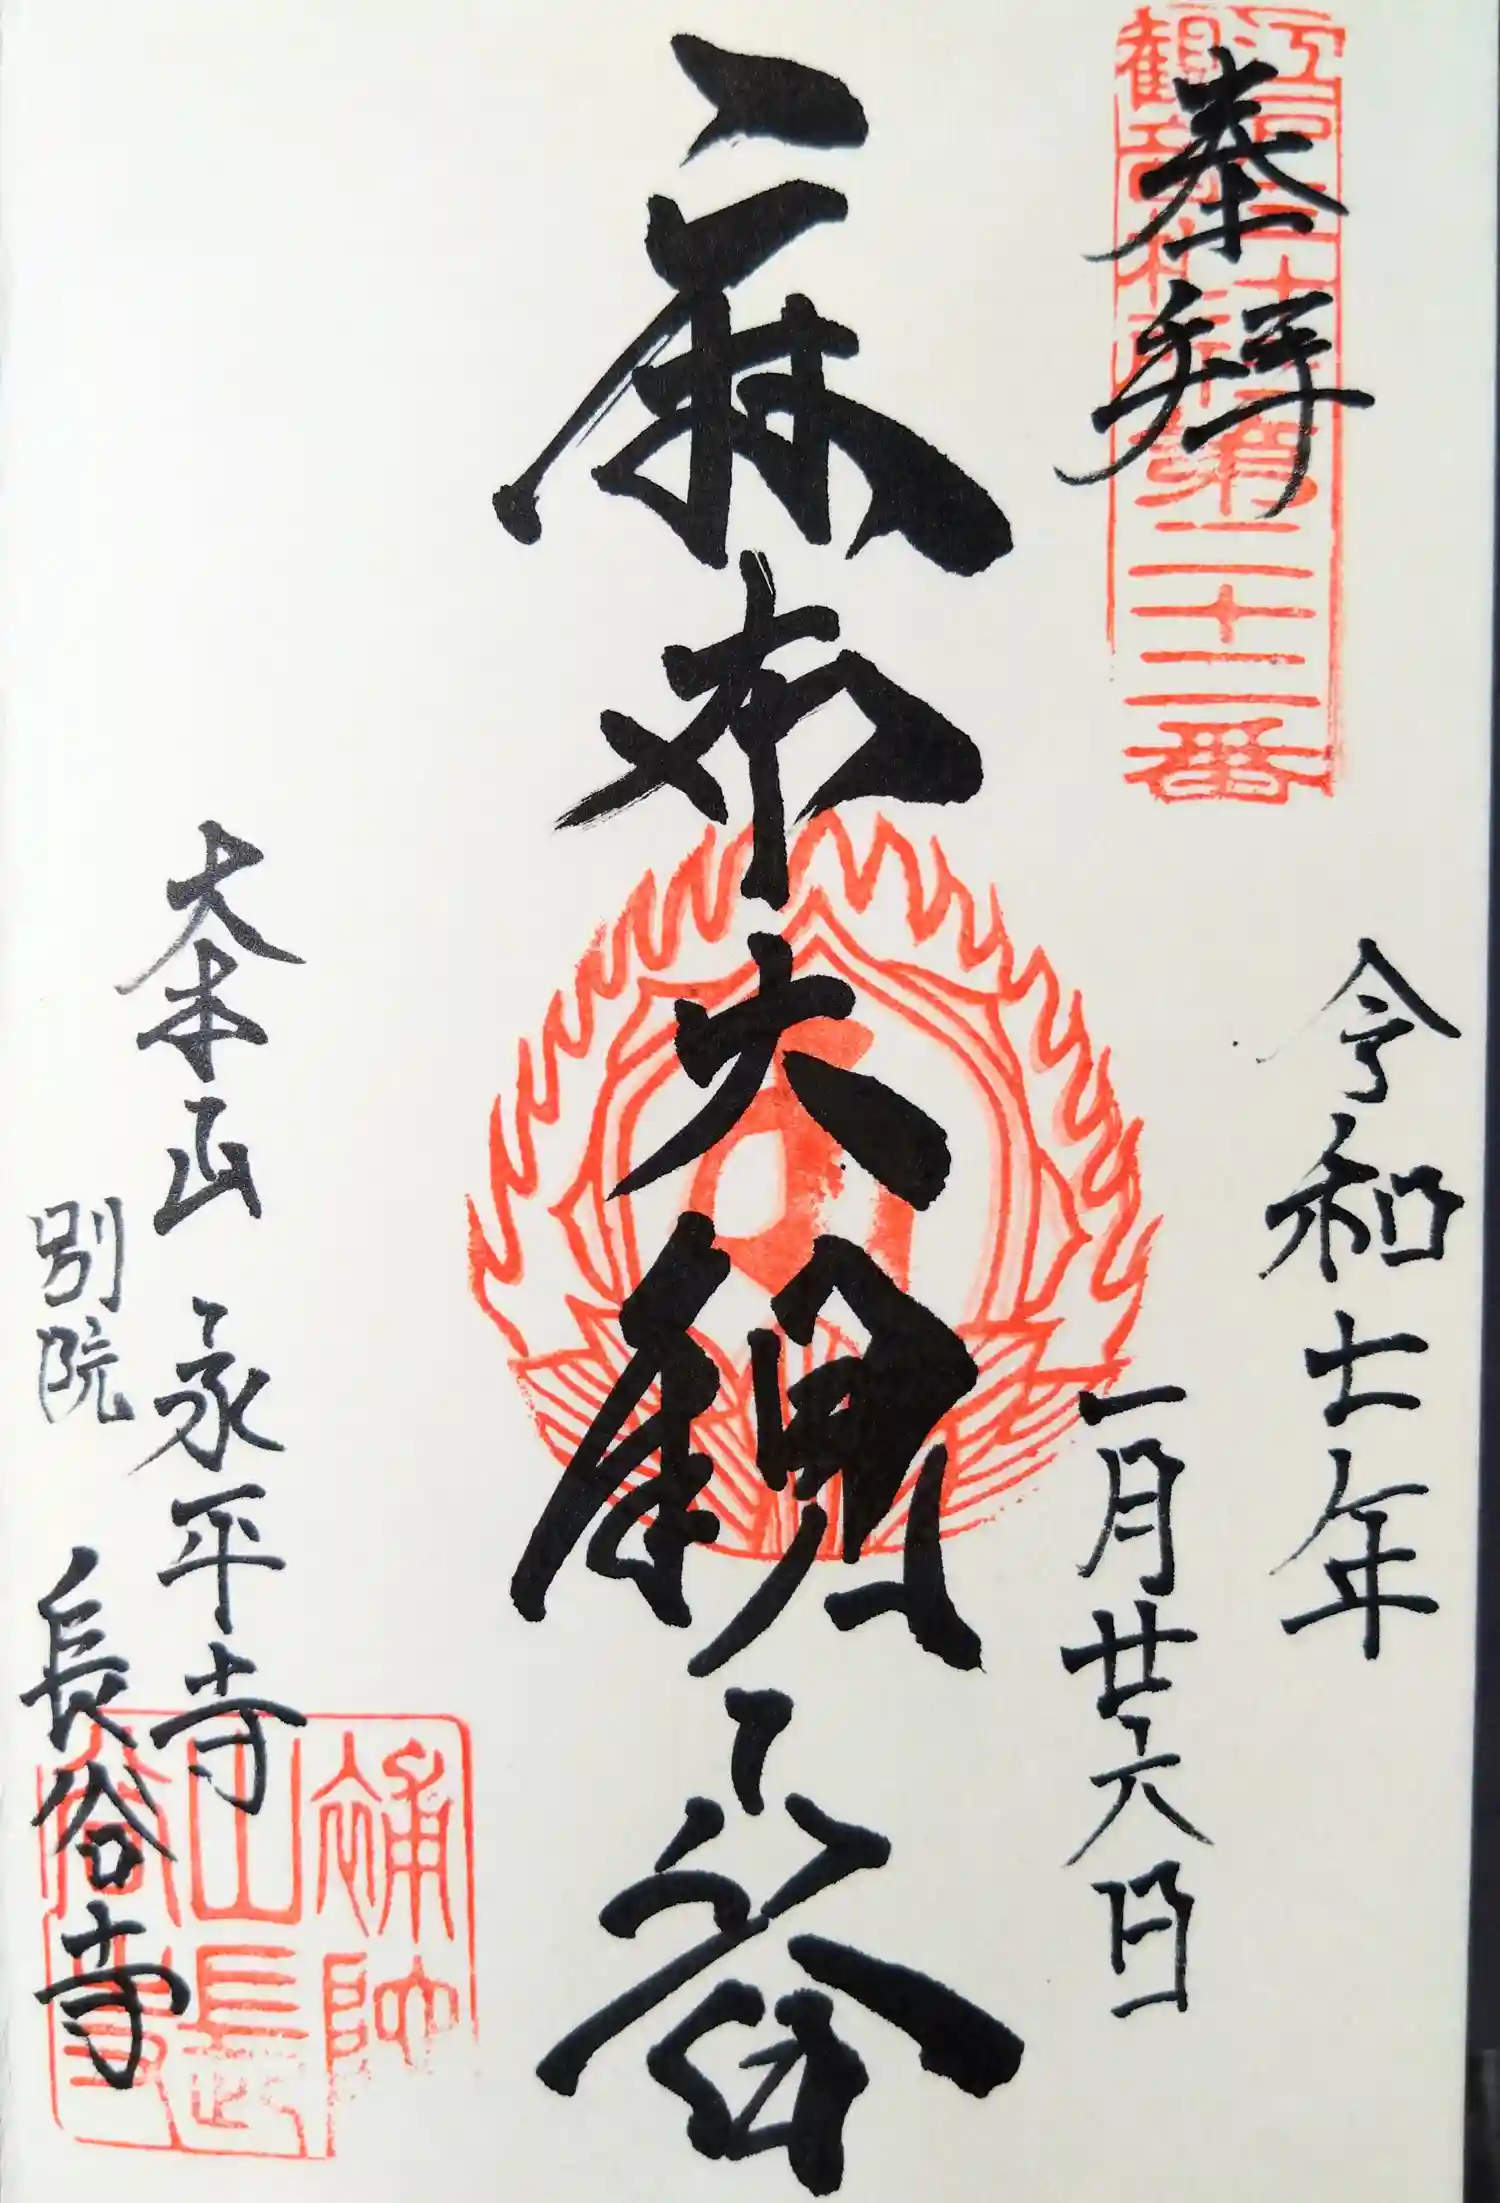 江戸三十三
観音札所第二十二番
奉拝
令和七年
一月廿六日
麻布大観音
大本山 永平寺
別院 長谷寺
補陀
山長
谷寺